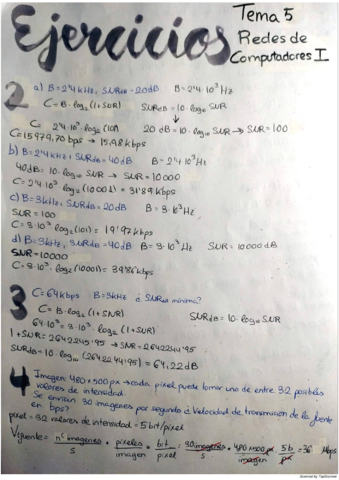 Ejercicios
Tema 5
Redes de
Computadores I
2
a) B=2'4 kHz, SNRdB=20dB B=2'4·10³ Hz
C=B·log₂(1+SNR) SNRdB=10·log₁₀ SNR
C= 2'4·10³·log₂(101) 20 dB=10·log₁₀ SNR → SNR=100
C=15979,70 bps → 15,98 kbps
b) B=2'4 kHz, SNRdB=40dB B=2'4·10³ Hz
40dB=10·log₁₀ SNR → SNR=10000
C=2'4·10³ log₂(10001)=31'89 kbps
c) B=3kHz, SNRdB=20dB B=3·10³ Hz
SNR=100
C=3·10³·log₂(101)=19'97 kbps
d) B=3kHz, SNRdB=40dB B=3·10³ Hz SNR=10000 dB
SNR=10000
C=3·10³·log₂(10001)=39'86 kbps
3
C=64kbps B=3kHz ¿SNRdB mínima?
C=B·log₂(1+SNR) SNRdB=10·log₁₀ SNR
64·10³=3·10³·log₂(1+SNR)
1+SNR=2642245'95 → SNR=2642244'95
SNRdB=10·log₁₀(2642244'95)=64,22dB
4
Imagen: 480x500 px → cada pixel puede tomar uno de entre 32 posibles
valores de intensidad.
Se envían 30 imagenes por segundo ¿Velocidad de transmisión de la fuente
en bps?
pixel=32 valores de intensidad=5 bit/pixel
Vfuente= nº imagenes/s · pixeles/imagen · bit/pixel = 30 imagenes/s · 480x500 px/imagen · 5 b/px = 36 Mbps
Scanned by TapScanner